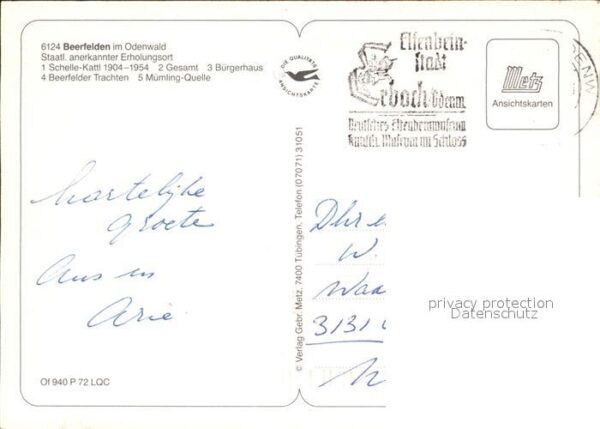 6124 Beerfelden im Odenwald
Staatl. anerkannter Erholungsort
1 Schelle-Kattl 1904–1954 2 Gesamt 3 Bürgerhaus
4 Beerfelder Trachten 5 Mümling-Quelle
DIE QUALITÄTS
ANSICHTSKARTE
Elfenbein-
stadt
Erbach Odenw.
Deutsches Elfenbeinmuseum
Metz
Ansichtskarten
© Verlag Gebr. Metz, 7400 Tübingen, Telefon (07071) 31051
hartelijke
groete
Ans en
Arie
Dhr e
W.
Waa
3131
privacy protection
Datenschutz
Of 940 P 72 LQC